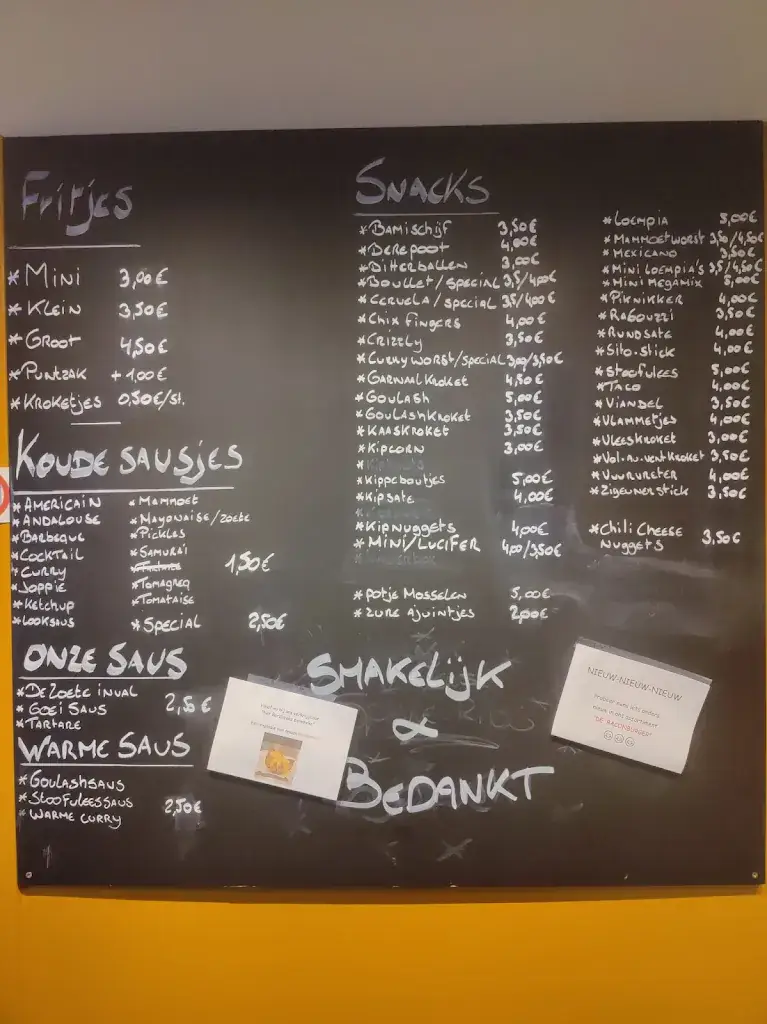 Fritjes
* Mini 3,00€
* Klein 3,50€
* Groot 4,50€
* Puntzak +1,00€
* Kroketjes 0,50€/st.
Koude sausjes
* Americain
* Andalouse
* Barbeque
* Cocktail
* Curry
* Joppie
* Ketchup
* Looksaus
* Mammoet
* Mayonaise/zoete
* Pickles
* Samurai
* Tomagreq
* Tomataise
1,50€
* Special 2,50€
Onze Saus
* De zoete inval
* Goei saus
* Tartare
Warme Saus
* Goulashsaus
* Stoofvleessaus
* Warme curry
2,50€
Snacks
* Bamischijf 3,50€
* Berepoot 4,00€
* Bitterballen 3,00€
* Boullet/special 3,5/4,00€
* Cervela/special 3,5/4,00€
* Chix Fingers 4,00€
* Crizzly 3,50€
* Curryworst/special 3,00/3,50€
* Garnaalkroket 4,50€
* Goulash 5,00€
* Goulashkroket 3,50€
* Kaaskroket 3,50€
* Kipcorn 3,00€
* Kippeboutjes 5,00€
* Kipsate 4,00€
* Kipnuggets 4,00€
* Mini/Lucifer 4,00/3,50€
* Potje Mosselen 5,00€
* Zure ajuintjes 2,00€
* Loempia 5,00€
* Mammoetworst 3,50/4,50€
* Mexicano 3,50€
* Mini loempia's 3,5/4,50€
* Mini Megamix 5,00€
* Piknikker 4,00€
* Ragouzzi 3,50€
* Rundsate 4,00€
* Sito-stick 4,00€
* Stoofvlees 5,00€
* Taco 4,00€
* Viandel 3,50€
* Vlammetjes 4,00€
* Vleeskroket 3,00€
* Vol-au-ventkroket 3,50€
* Vuurvreter 4,00€
* Zigeunerstick 3,50€
* Chili Cheese Nuggets 3,50€
Smakelijk
&
Bedankt
NIEUW-NIEUW-NIEUW
"DE BACONBURGER"